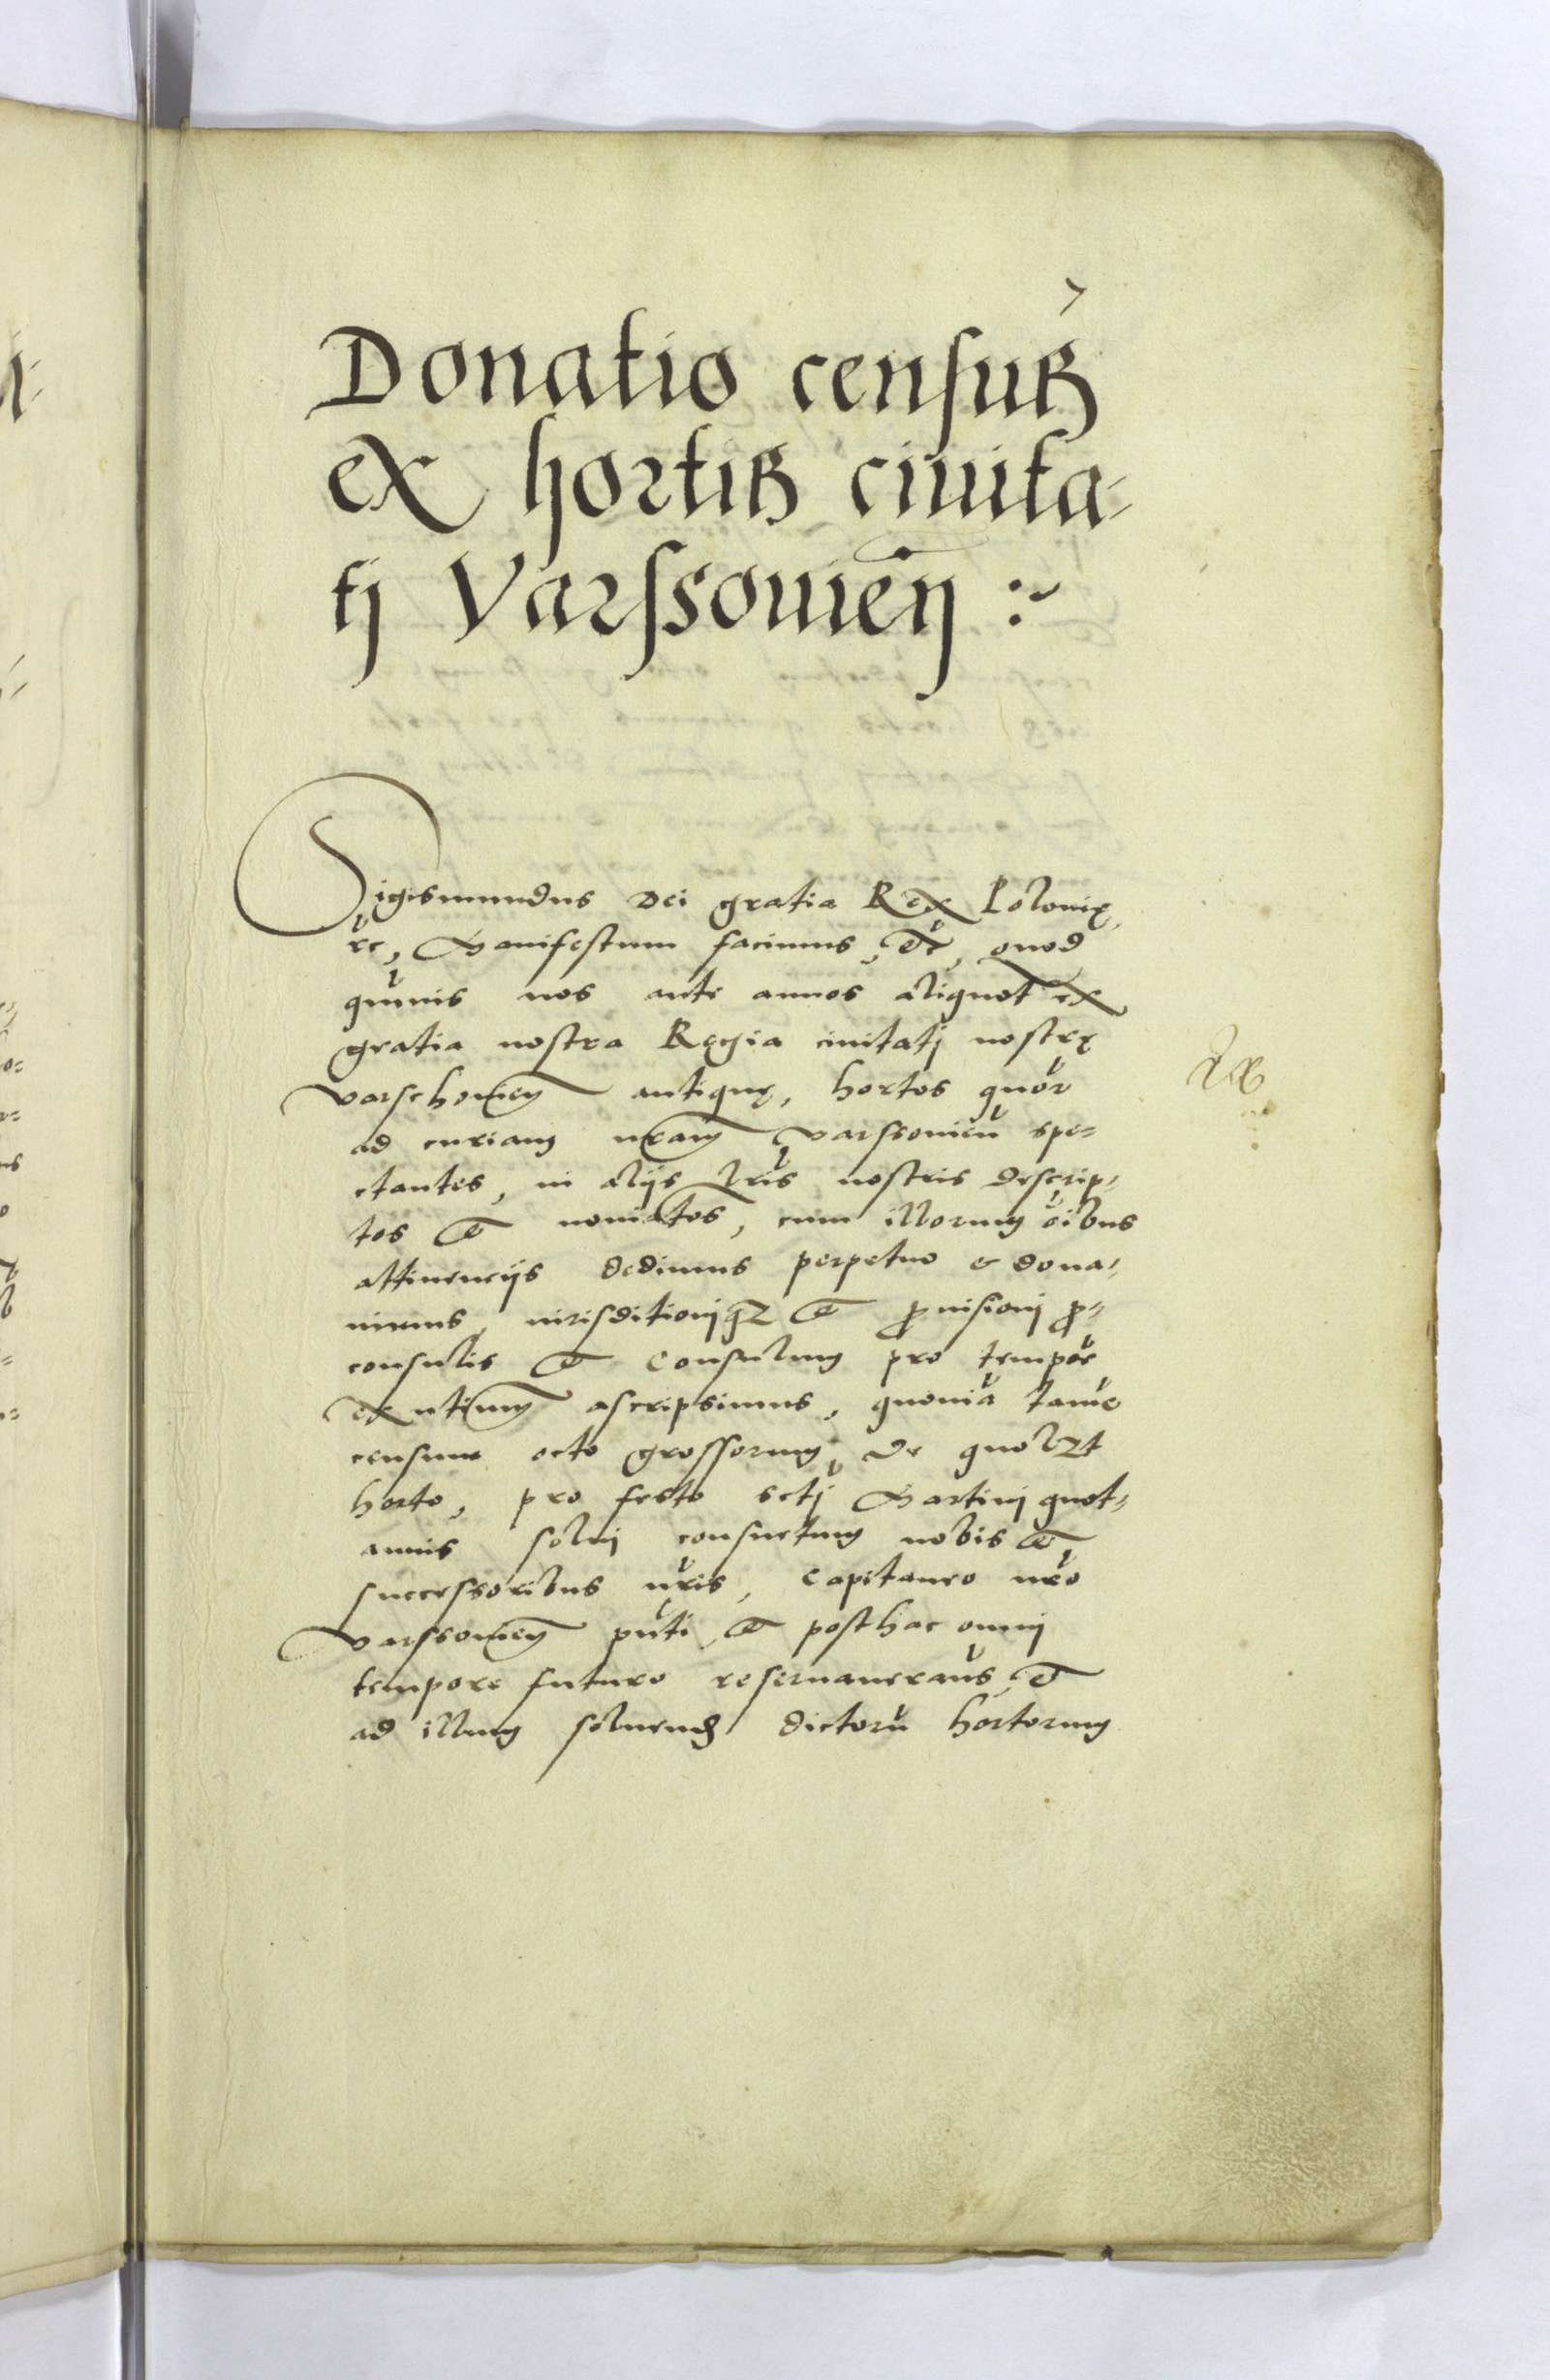 Donatio censuß
ex hortiß ciuita-
tj Varssouieñ :~
Sigismundus Dei gratia Rex Polonię
rc, Manifestum facimus, etc, quod
quũuis nos ante annos aliquot ex
gratia nostra Regia ciuitatj nostrę
Varschouieñ antiquę, hortos quor
ad curiam nrãm Varssouieñ spe-
ctantes, in alijs lris nostris descrip-
tos et noniatos, cum illorum oibus
attinencijs dedimus perpetuo & dona-
uimus, iurisditionjqz et ꝓuisionj ꝓ-
consulis et Consulum pro tempor̃
exñtium ascripsimus, quoniã tamẽ
censum octo grossorum, de quolzt
horto, pro festo sctj Martinj quot-
annis soluj consuetum nobis et
successoribus nris, Capitaneo nrõ
Varssouieñ pñti, et posthac omnj
tempore futuro reseruaueraus, et
ad illum soluend dictorũ hortorum